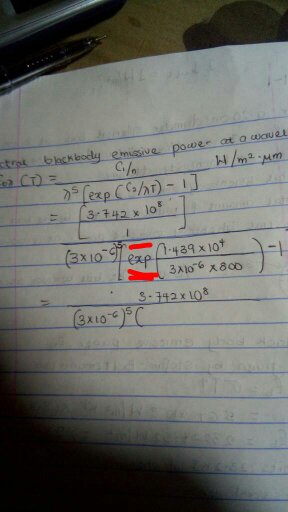 blackbody emissive power at a wavel
(T) = C₁/n
λ⁵[exp(C₂/λT) - 1] W/m²·μm
= [3.742 × 10⁸
1]
(3×10⁻⁶)⁵[exp(1.439×10⁴
3×10⁻⁶ × 800) - 1
= 3.742×10⁸
(3×10⁻⁶)⁵(